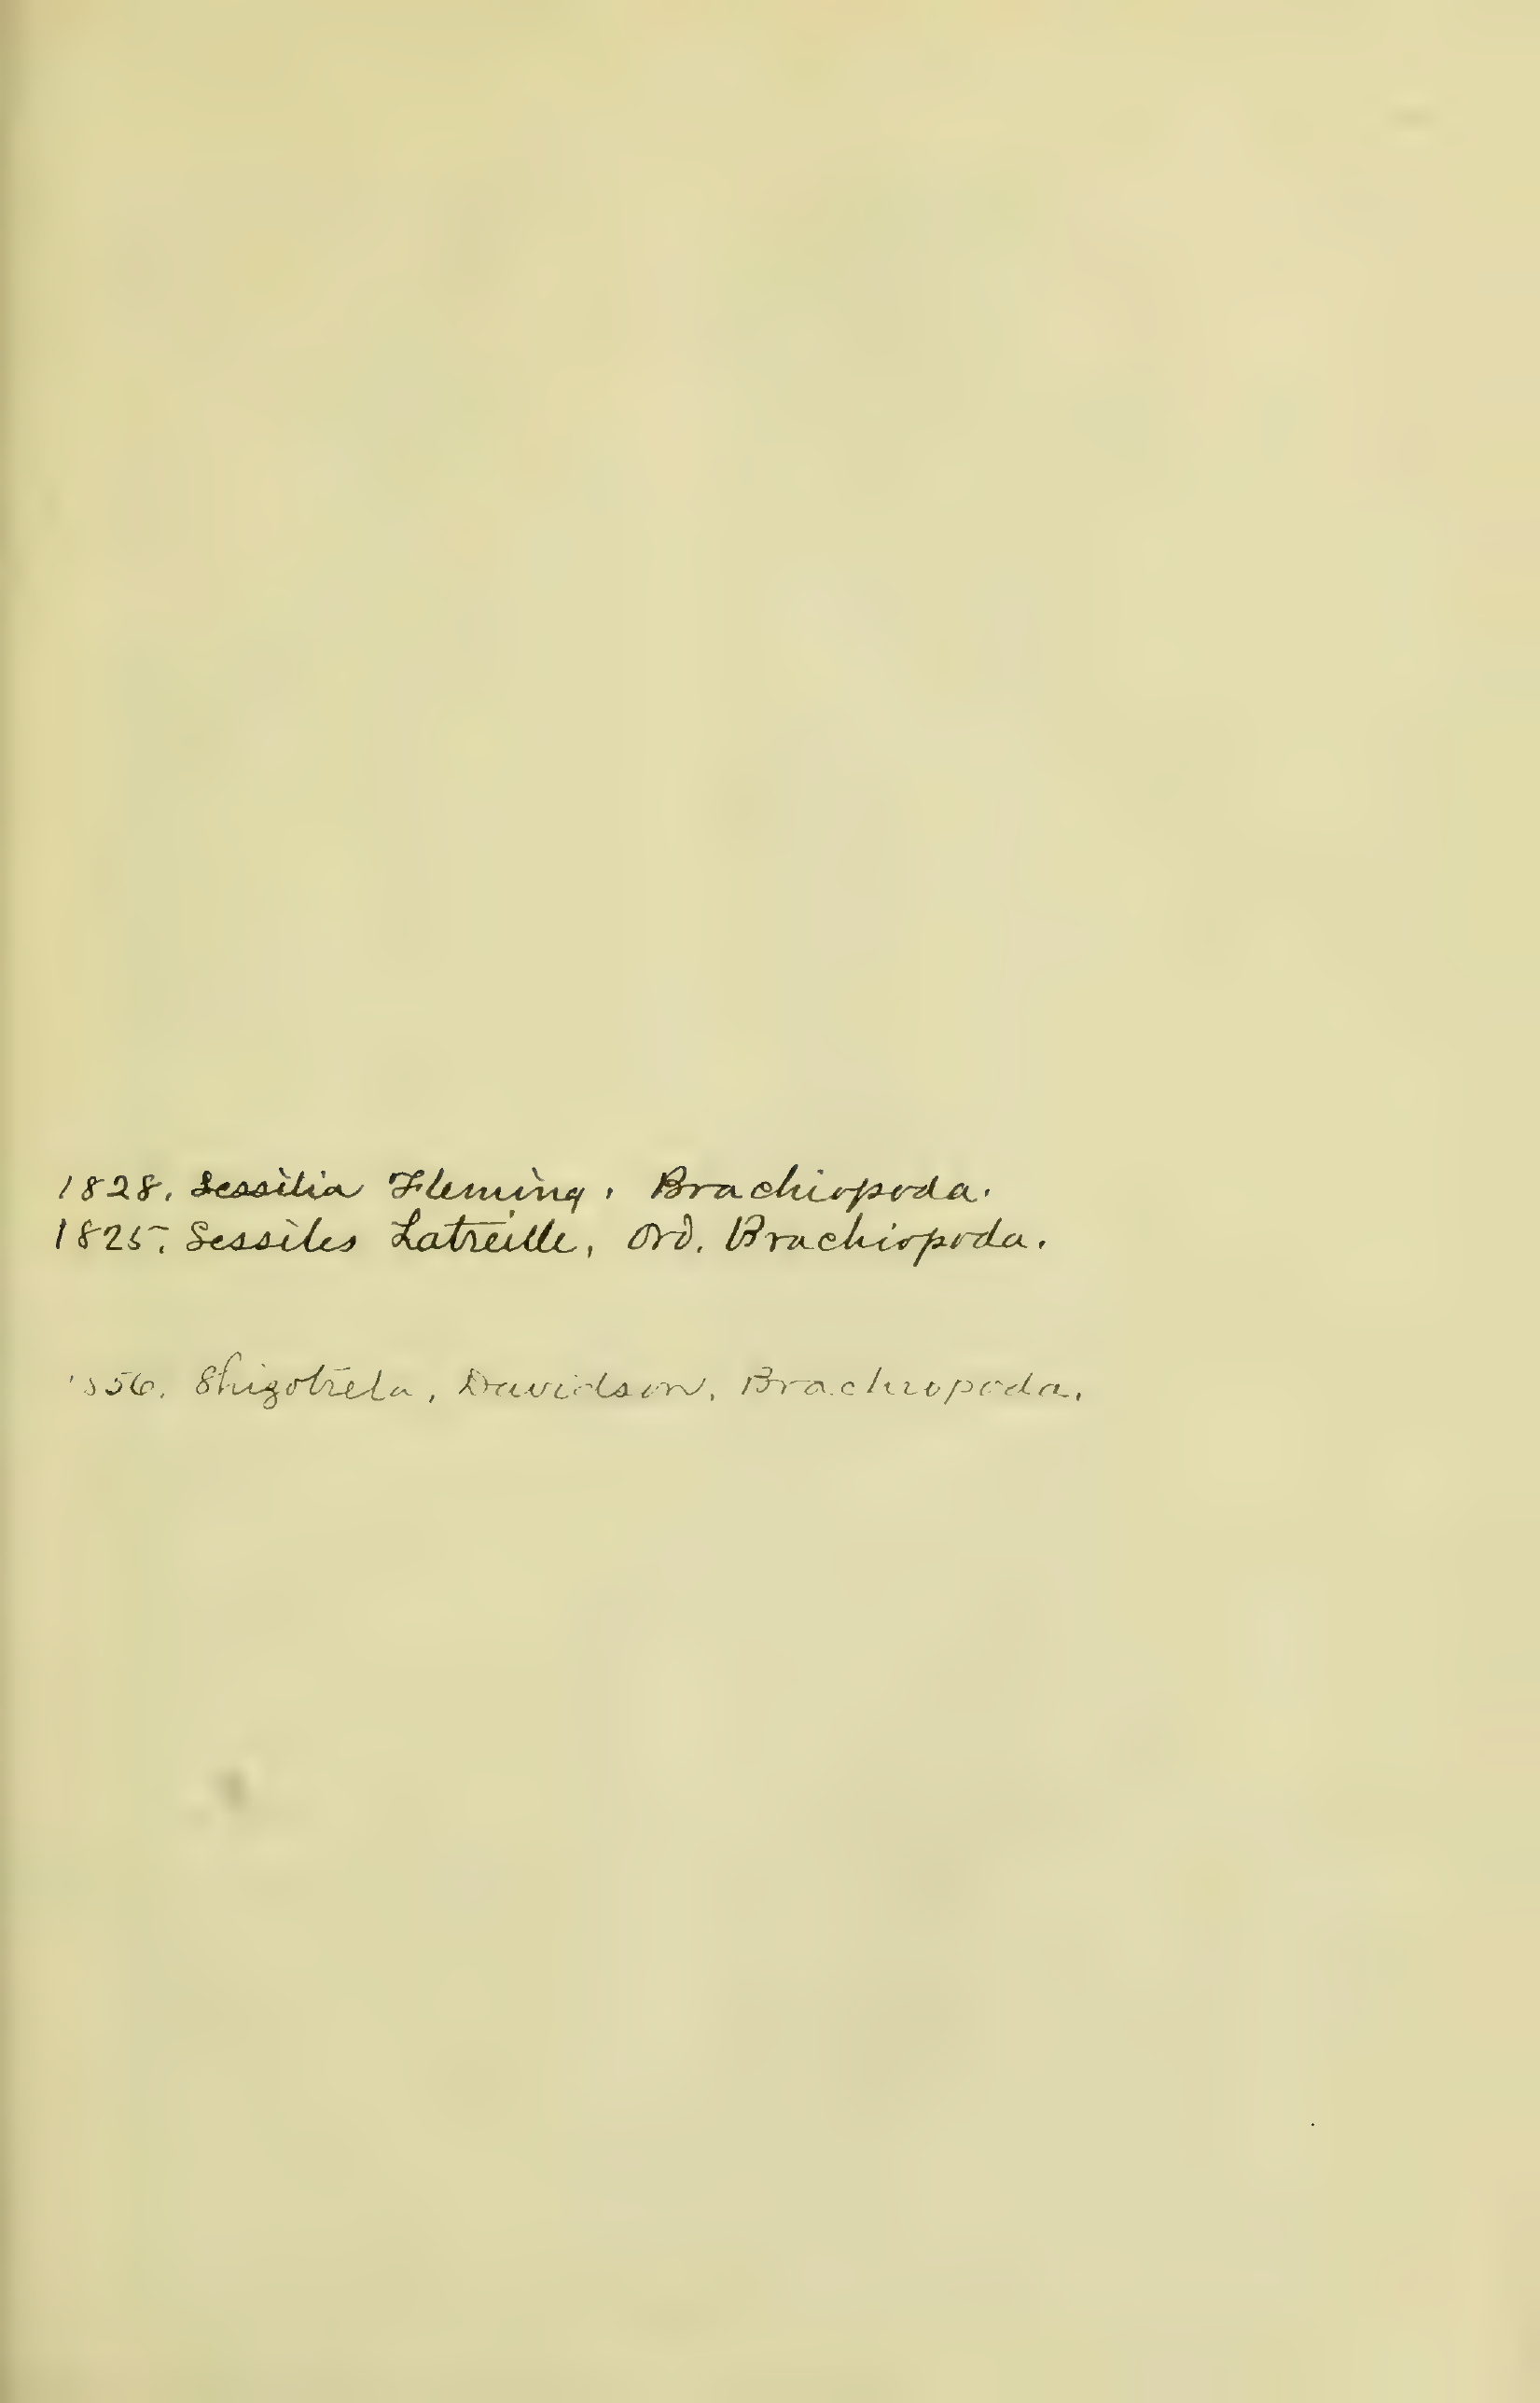 1828. Sessilia Fleming. Brachiopoda.
1825. Sessiles Latreille, Ord. Brachiopoda.
1856. Shizotreta, Davidson, Brachiopoda.